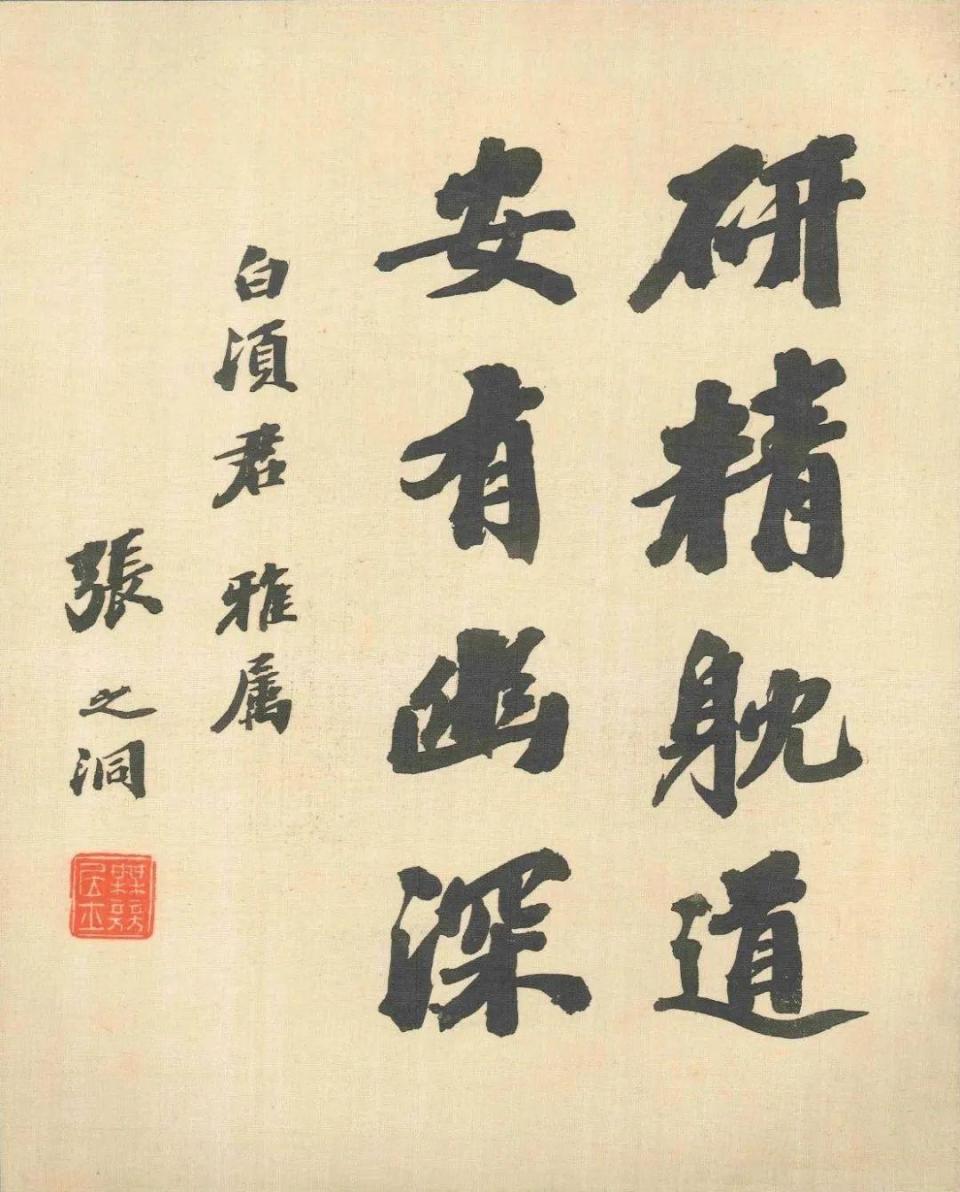 研精躭道
安有幽深
白須君雅属
張之洞